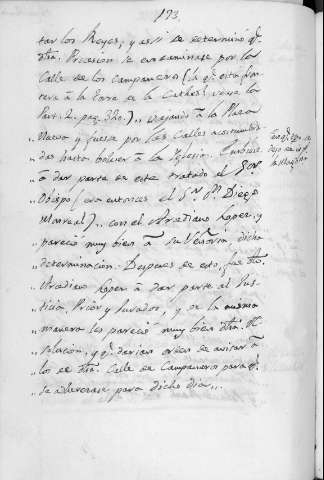 173.
tar los Reyes; y assi se determinò q.e
dha. Procesion se encaminase por la
Calle de los campaneros (la q.e esta fron-
tera à la Torre de la Cathed.l vease la
Part. 2. pag. 380.) ,, dejando à la Plaza
Nueva y fuese por las Calles acostumbra-
,, das hasta bolver à la Iglesia.
,, à dar parte de este tratado el Sor.
,, Obispo (era entonces el S.r D.n Diego
,, Monreal) ,, con el Arcediano Loper, y
,, pareciò muy bien à su Señoria dicha
,, determinacion. Despues de esto, fue dho.
,, Arcediano Loper à dar parte al Jus-
,, ticia, Prior y Jurados, y de la misma
,, manera les pareciò muy bien dha.
,, y q.e darian orden de avisar à
,, los de dha. Calle de Campaneros para q.e
,, se aderezase para dicho dia ,,